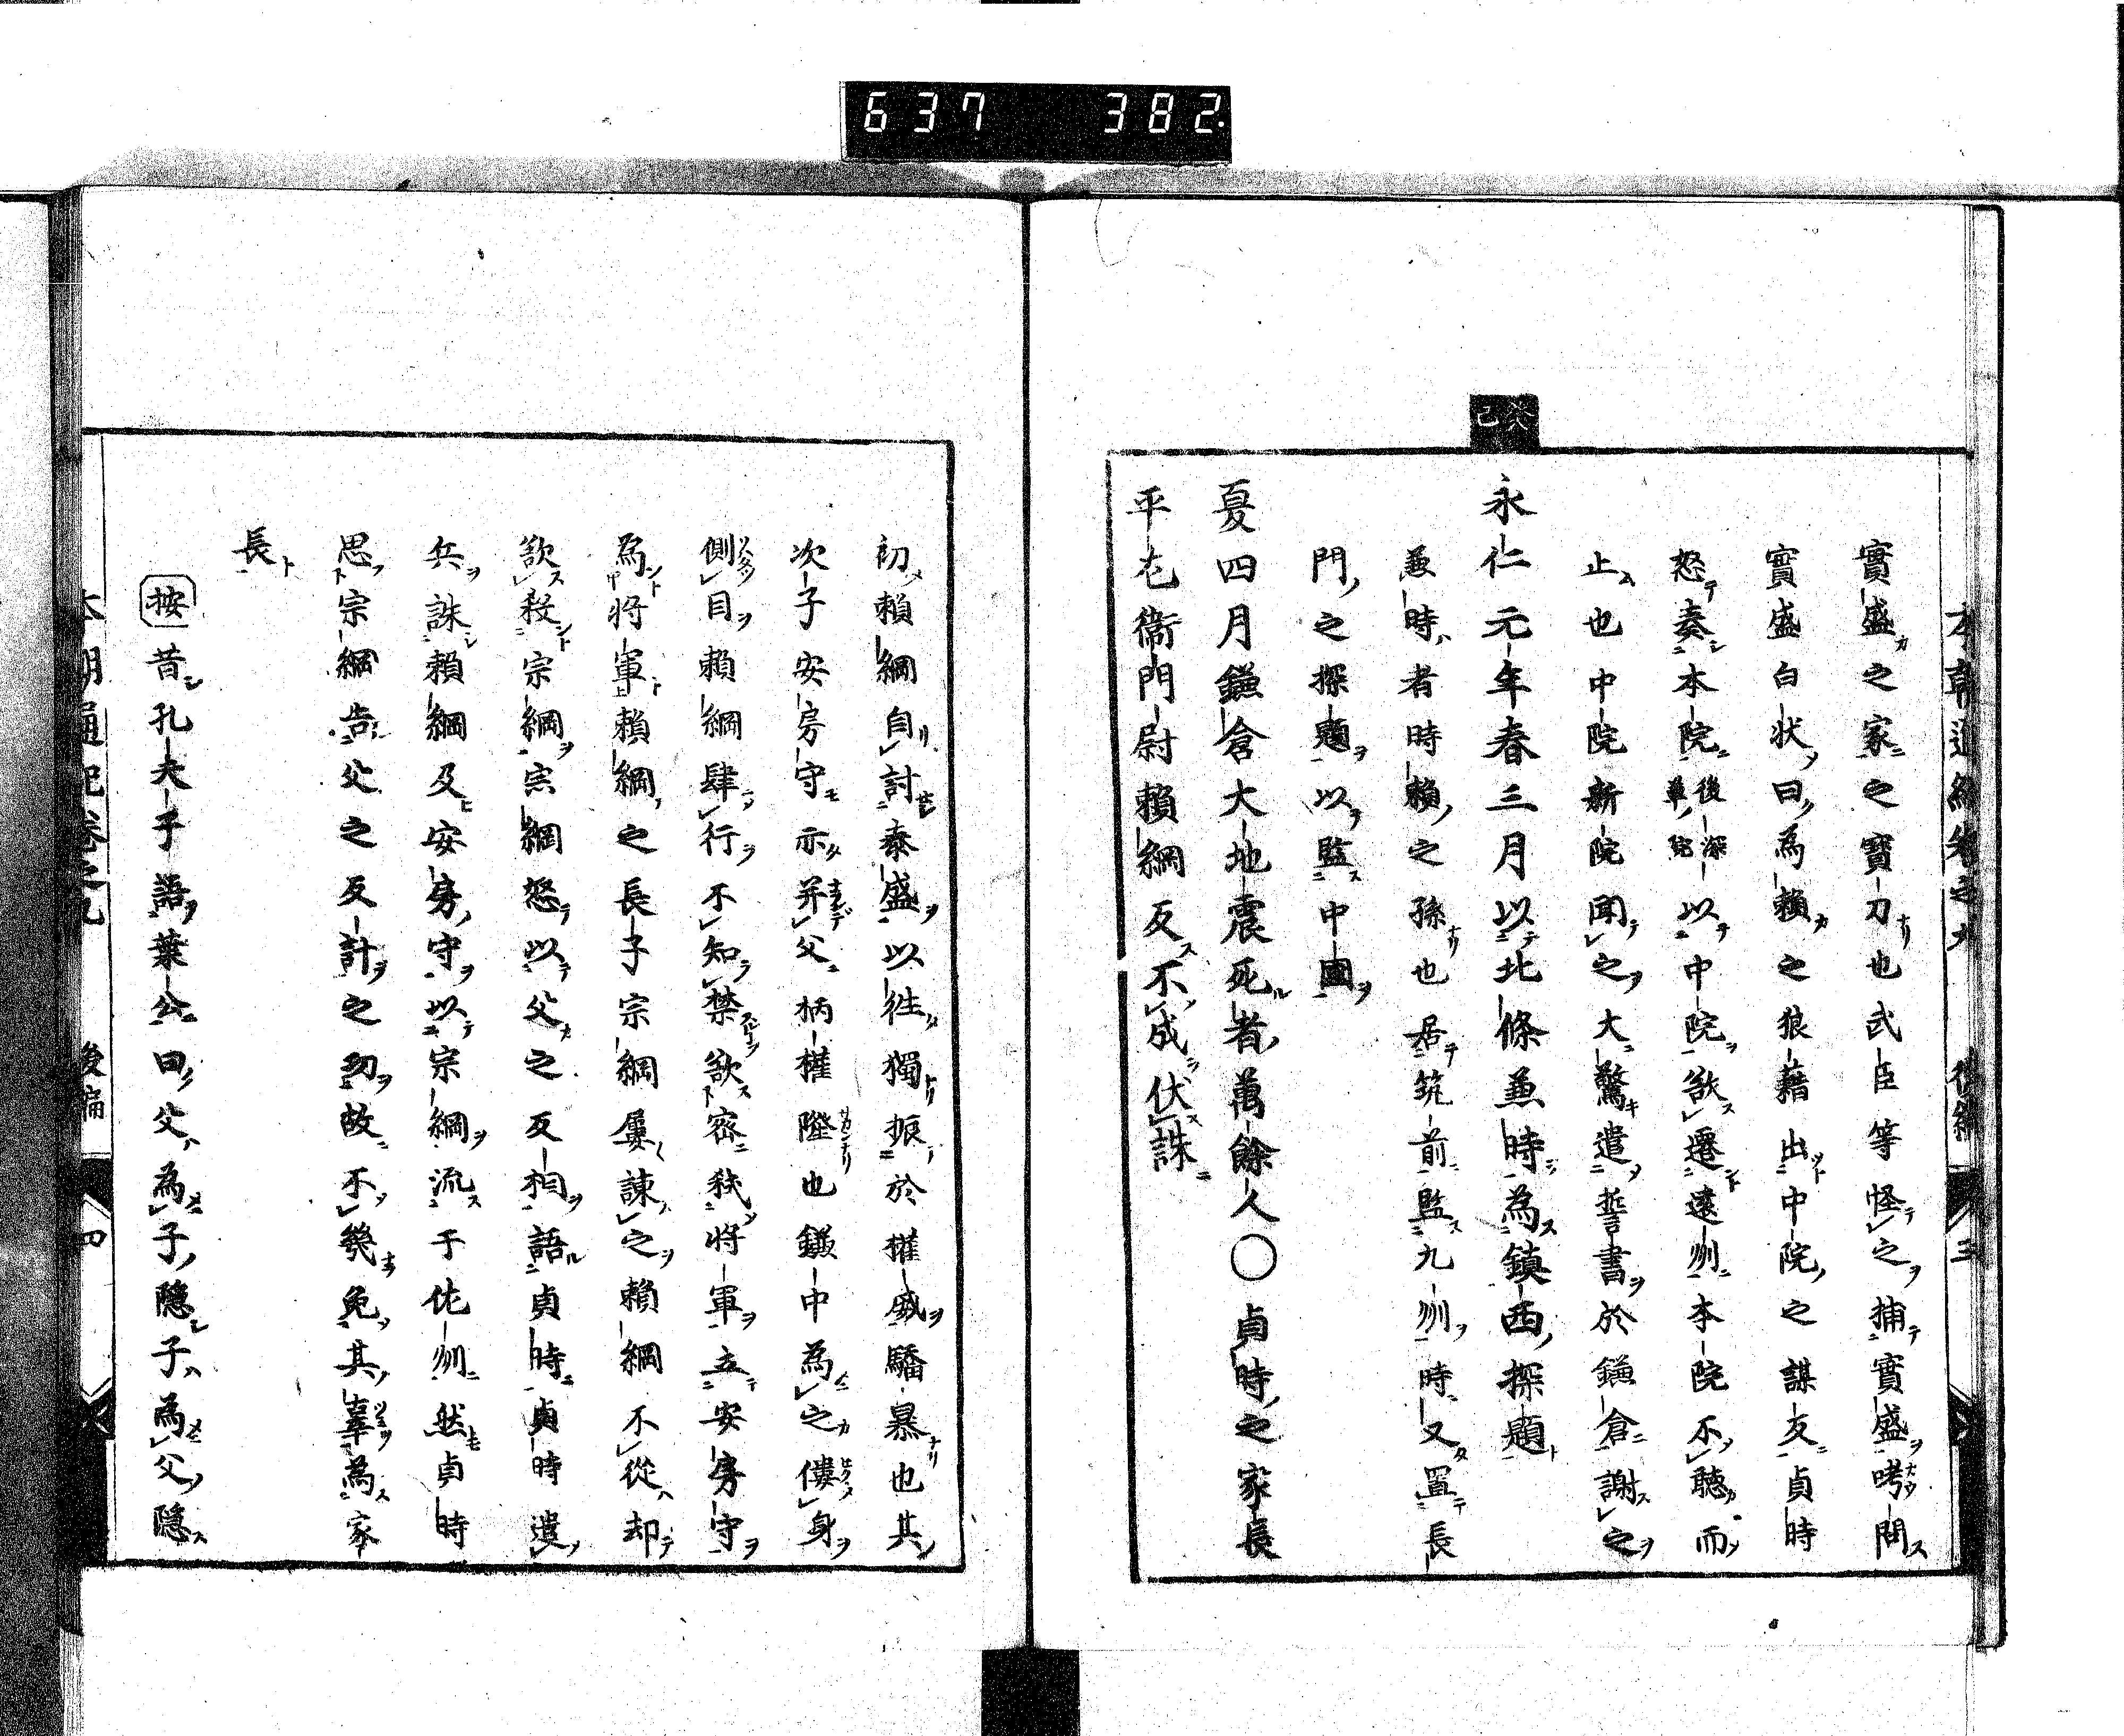 637 382.
本朝通紀卷之九 後編 三
實盛之家之寶刀也武臣等怪之捕實盛哮問
實盛白状曰為賴之狼藉出中院之謀反貞時
怒奏本院後深草院以中院欲遷遠州本院不聴而
止也中院新院聞之大驚遣誓書於鎌倉謝之
癸巳
永仁元年春三月以北條兼時為鎮西探題
兼時者時賴之孫也居筑前監九州時又置長
門之探題以監中國
夏四月鎌倉大地震死者萬餘人○貞時之家長
平左衞門尉賴綱反不成伏誅
初賴綱自討泰盛以徃獨振於權威驕暴也其
次子安房守亦并父柄權隆也鎌中為之僂身
側目賴綱肆行不知禁欲密弒將軍立安房守
為將軍賴綱之長子宗綱屢諫之賴綱不從却
欲殺宗綱宗綱怒以父之反相語貞時貞時遣
兵誅賴綱及安房守以宗綱流于佐州然貞時
思宗綱告父之反計之功故不幾免其辜為家
長
按昔孔夫子語葉公曰父為子隱子為父隱
本朝通紀卷之九 後編 四